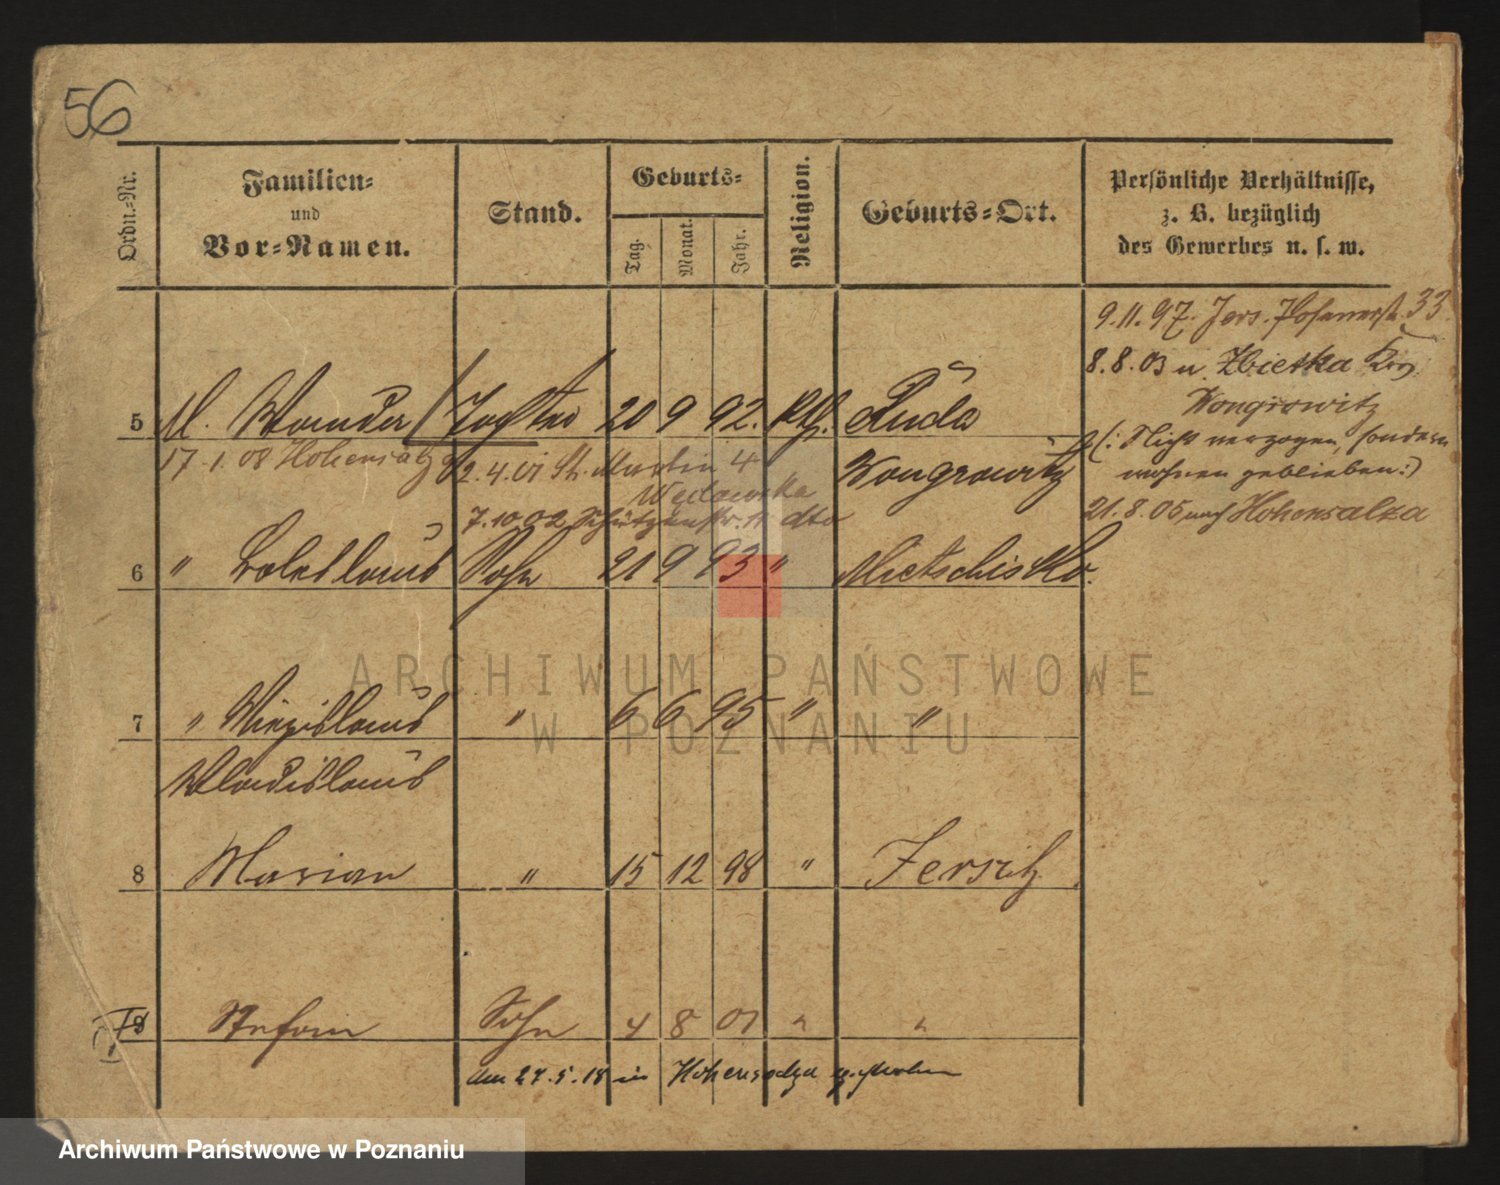 56
Ordn.-Nr.
Familien-
und
Vor-Namen.
Stand.
Geburts-
Tag.
Monat.
Jahr.
Religion.
Geburts-Ort.
Persönliche Verhältnisse,
z. B. bezüglich
des Gewerbes u. s. w.
9.11.97. Jers. Posenerst. 33
8.8.03 n. Zbietka Krs
Wongrowitz
(: Nicht verzogen, sondern
wohnen geblieben :)
21.8.05 nach Hohensalza
5 M. Wanda Tochter 20 9 92. Kth. Ruda
17.1.08 Hohensalza 2.4.01 St. Martin 4 Wongrowitz
7.10.02 Schützenstr. 11 dto
6 " Boleslaus Sohn 21 9 93 " Mietschisko.
7 " Miezislaus " 6 6 95 " "
Wladislaus
8 Marian " 15 12 98 " Jersitz
9 Stefan Sohn 4 8 01 " "
am 27.5.18 in Hohensalza gestorben
ARCHIWUM PAŃSTWOWE
W POZNANIU
Archiwum Państwowe w Poznaniu